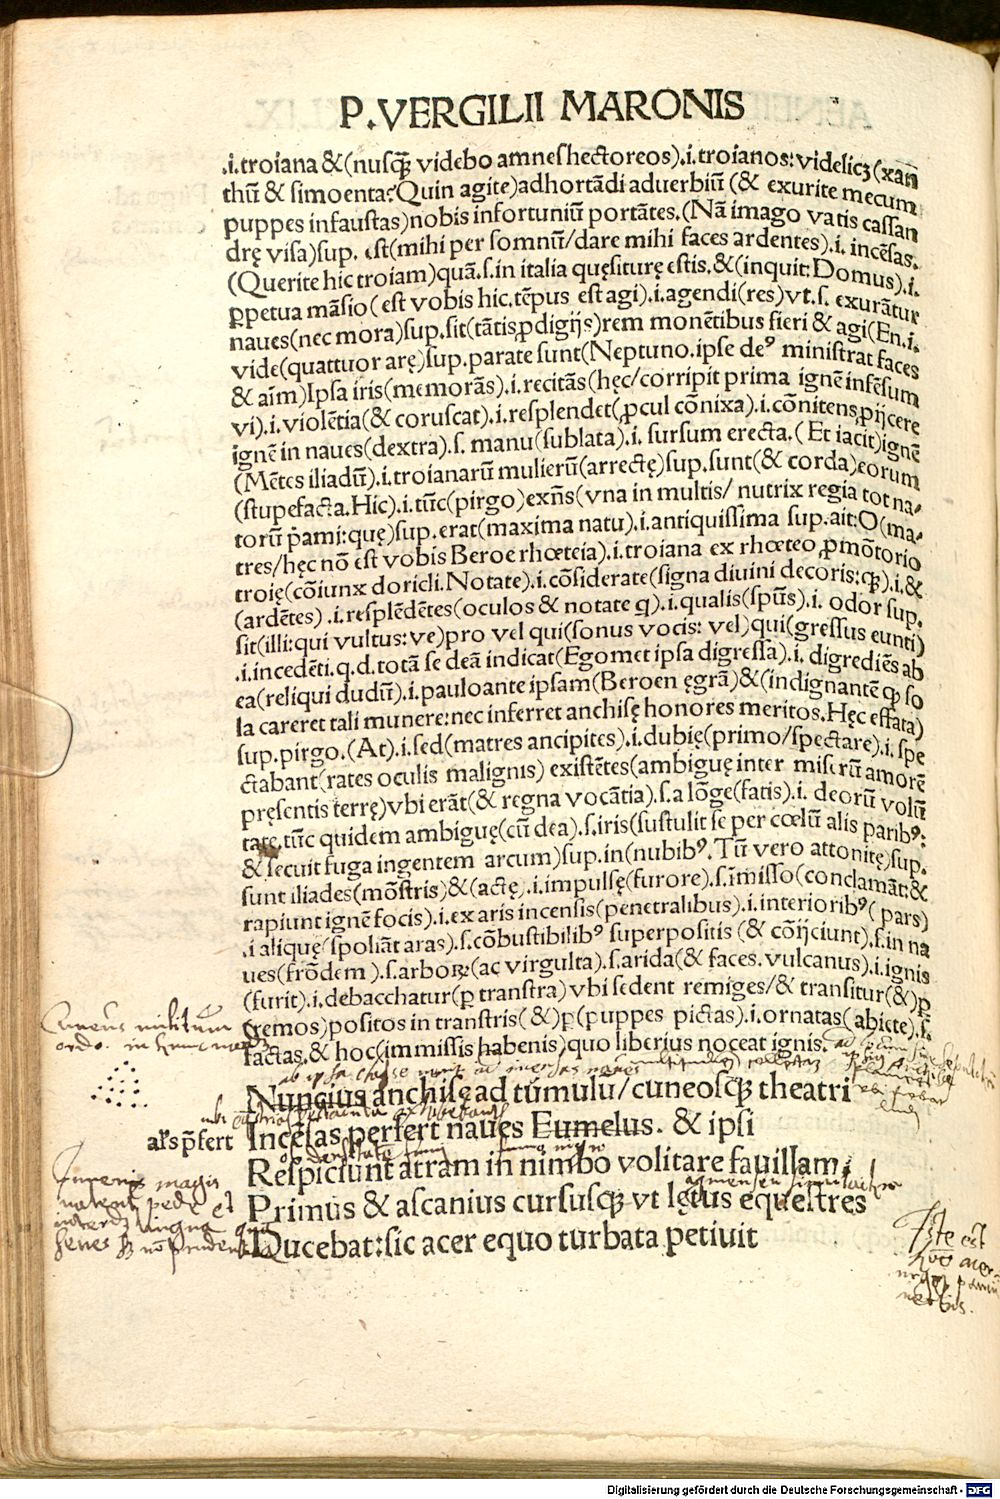 P. VERGILII MARONIS
.i. troiana &(nusq̃ videbo amnes hectoreos).i. troianos: videlicꝫ (xan
thũ & simoenta? Quin agite) adhortãdi aduerbiũ (& exurite mecum
puppes infaustas) nobis infortuniũ portãtes. (Nã imago vatis cassan
drę visa) sup. est (mihi per somnũ/ dare mihi faces ardentes).i. incẽsas.
(Querite hic troiam) quã.s. in italia quęsiturę estis. & (inquit: Domus).i.
ꝑpetua mãsio (est vobis hic. tẽpus est agi).i. agendi (res) vt.s. exurãtur
naues (nec mora) sup. sit (tãtis ꝓdigijs) rem monẽtibus fieri & agi (En.i.
vide (quattuor arę) sup. parate sunt (Neptuno. ipse deꝰ ministrat faces
& aĩm) Ipsa iris (memorãs).i. recitãs (hęc/ corripit prima ignẽ infẽsum
vi).i. violẽtia (& coruscat).i. resplendet (ꝓcul cõnixa).i. cõnitens ꝓijcere
ignẽ in naues (dextra).s. manu (sublata).i. sursum erecta. (Et iacit) ignẽ
(Mẽtes iliadũ).i. troianarũ mulierũ (arrectę) sup. sunt (& corda) eorum
(stupefacta. Hic).i. tũc (pirgo) exñs (vna in multis/ nutrix regia tot na⸗
torũ p̓ami: quę) sup. erat (maxima natu).i. antiquissima sup. ait: O (ma⸗
tres/ hęc nõ est vobis Beroe rhœteia).i. troiana ex rhœteo ꝓmõtorio
troię (cõiunx doricli. Notate).i. cõsiderate (signa diuini decoris: qꝫ).i. &
(ardẽtes) .i. resplẽdẽtes (oculos & notate q).i. qualis (spũs).i. odor sup.
sit (illi: qui vultus: ve) pro vel qui (sonus vocis: vel) qui (gressus eunti)
.i. incedẽti. q.d. totã se deã indicat (Egomet ipsa digressã).i. digrediẽs ab
ea (reliqui dudũ).i. pauloante ipsam (Beroen ęgrã) & (indignantẽ qꝫ so
la careret tali munere: nec inferret anchisę honores meritos. Hęc effata)
sup. pirgo. (At).i. sed (matres ancipites).i. dubię (primo/ spectare).i. spe
ctabant (rates oculis malignis) existẽtes (ambiguę inter miserũ amorẽ
pręsentis terrę) vbi erãt (& regna vocãtia).s. a lõge (fatis).i. deorũ volũ
tate. tũc quidem ambiguę (cũ dea).s. iris (sustulit se per cœlũ alis paribꝰ:
& secuit fuga ingentem arcum) sup. in (nubibꝰ. Tũ vero attonitę) sup.
sunt iliades (mõstris) & (actę) .i. impulsę (furore).s. ĩmisso (conclamãt: &
rapiunt ignẽ focis).i. ex aris incensis (penetralibus).i. interioribꝰ (pars)
.i aliquę (spoliãt aras).s. cõbustibilibꝰ superpositis (& cõijciunt).s. in na
ues (frõdem ).s. arboꝝ (ac virgulta).s. arida (& faces. vulcanus).i. ignis
(furit).i. debacchatur (ꝑ transtra) vbi sedent remiges/ & transitur (&) ꝑ
(remos) positos in transtris (&) ꝑ (puppes pictas).i. ornatas (abiete).s̃.
factas. & hoc (immissis habenis) quo liberius noceat ignis.
Cuneus militum
ordo.
Nuncius anchisę ad tumulu/ cuneosq̃ theatri
al's p̃fert Incẽsas perfert naues Eumelus. & ipsi
Respiciunt atram in nimbo volitare fauillam.
Primus & ascanius cursusq̃ vt lętus equestres
Ducebat: sic acer equo turbata petiuit
Iuuenis magis
pede et
lingua
senes
Iste est
Digitalisierung gefördert durch die Deutsche Forschungsgemeinschaft - DFG